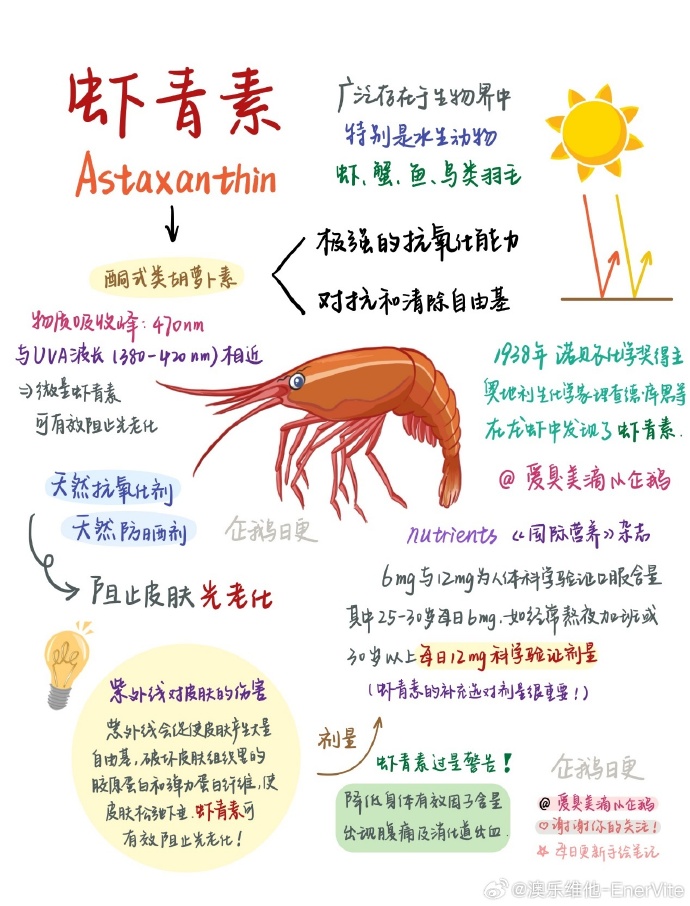 虾青素
Astaxanthin
广泛存在于生物界中
特别是水生动物
虾、蟹、鱼、鸟类羽毛
酮式类胡萝卜素
极强的抗氧化能力
对抗和清除自由基
物质吸收峰：470nm
与UVA波长(380-420nm)相近
⇒微量虾青素
可有效阻止光老化
1938年 诺贝尔化学奖得主
奥地利生化学家理查德·库恩等
在龙虾中发现了虾青素.
@爱臭美滴小企鹅
天然抗氧化剂
天然防晒剂
企鹅日更
阻止皮肤光老化
nutrients 《国际营养》杂志
6mg与12mg为人体科学验证口服含量
其中25-30岁每日6mg.如经常熬夜加班或
30岁以上每日12mg科学验证剂量
(虾青素的补充选对剂量很重要!)
紫外线对皮肤的伤害
紫外线会促使皮肤产生大量
自由基,破坏皮肤组织里的
胶原蛋白和弹力蛋白纤维,使
皮肤松弛下垂.虾青素可
有效阻止光老化!
剂量
虾青素过量警告!
降低身体有效因子含量
出现腹痛及消化道出血.
企鹅日更
@爱臭美滴小企鹅
♡谢谢你的关注!
☆每日更新手绘笔记
@澳乐维他-EnerVite